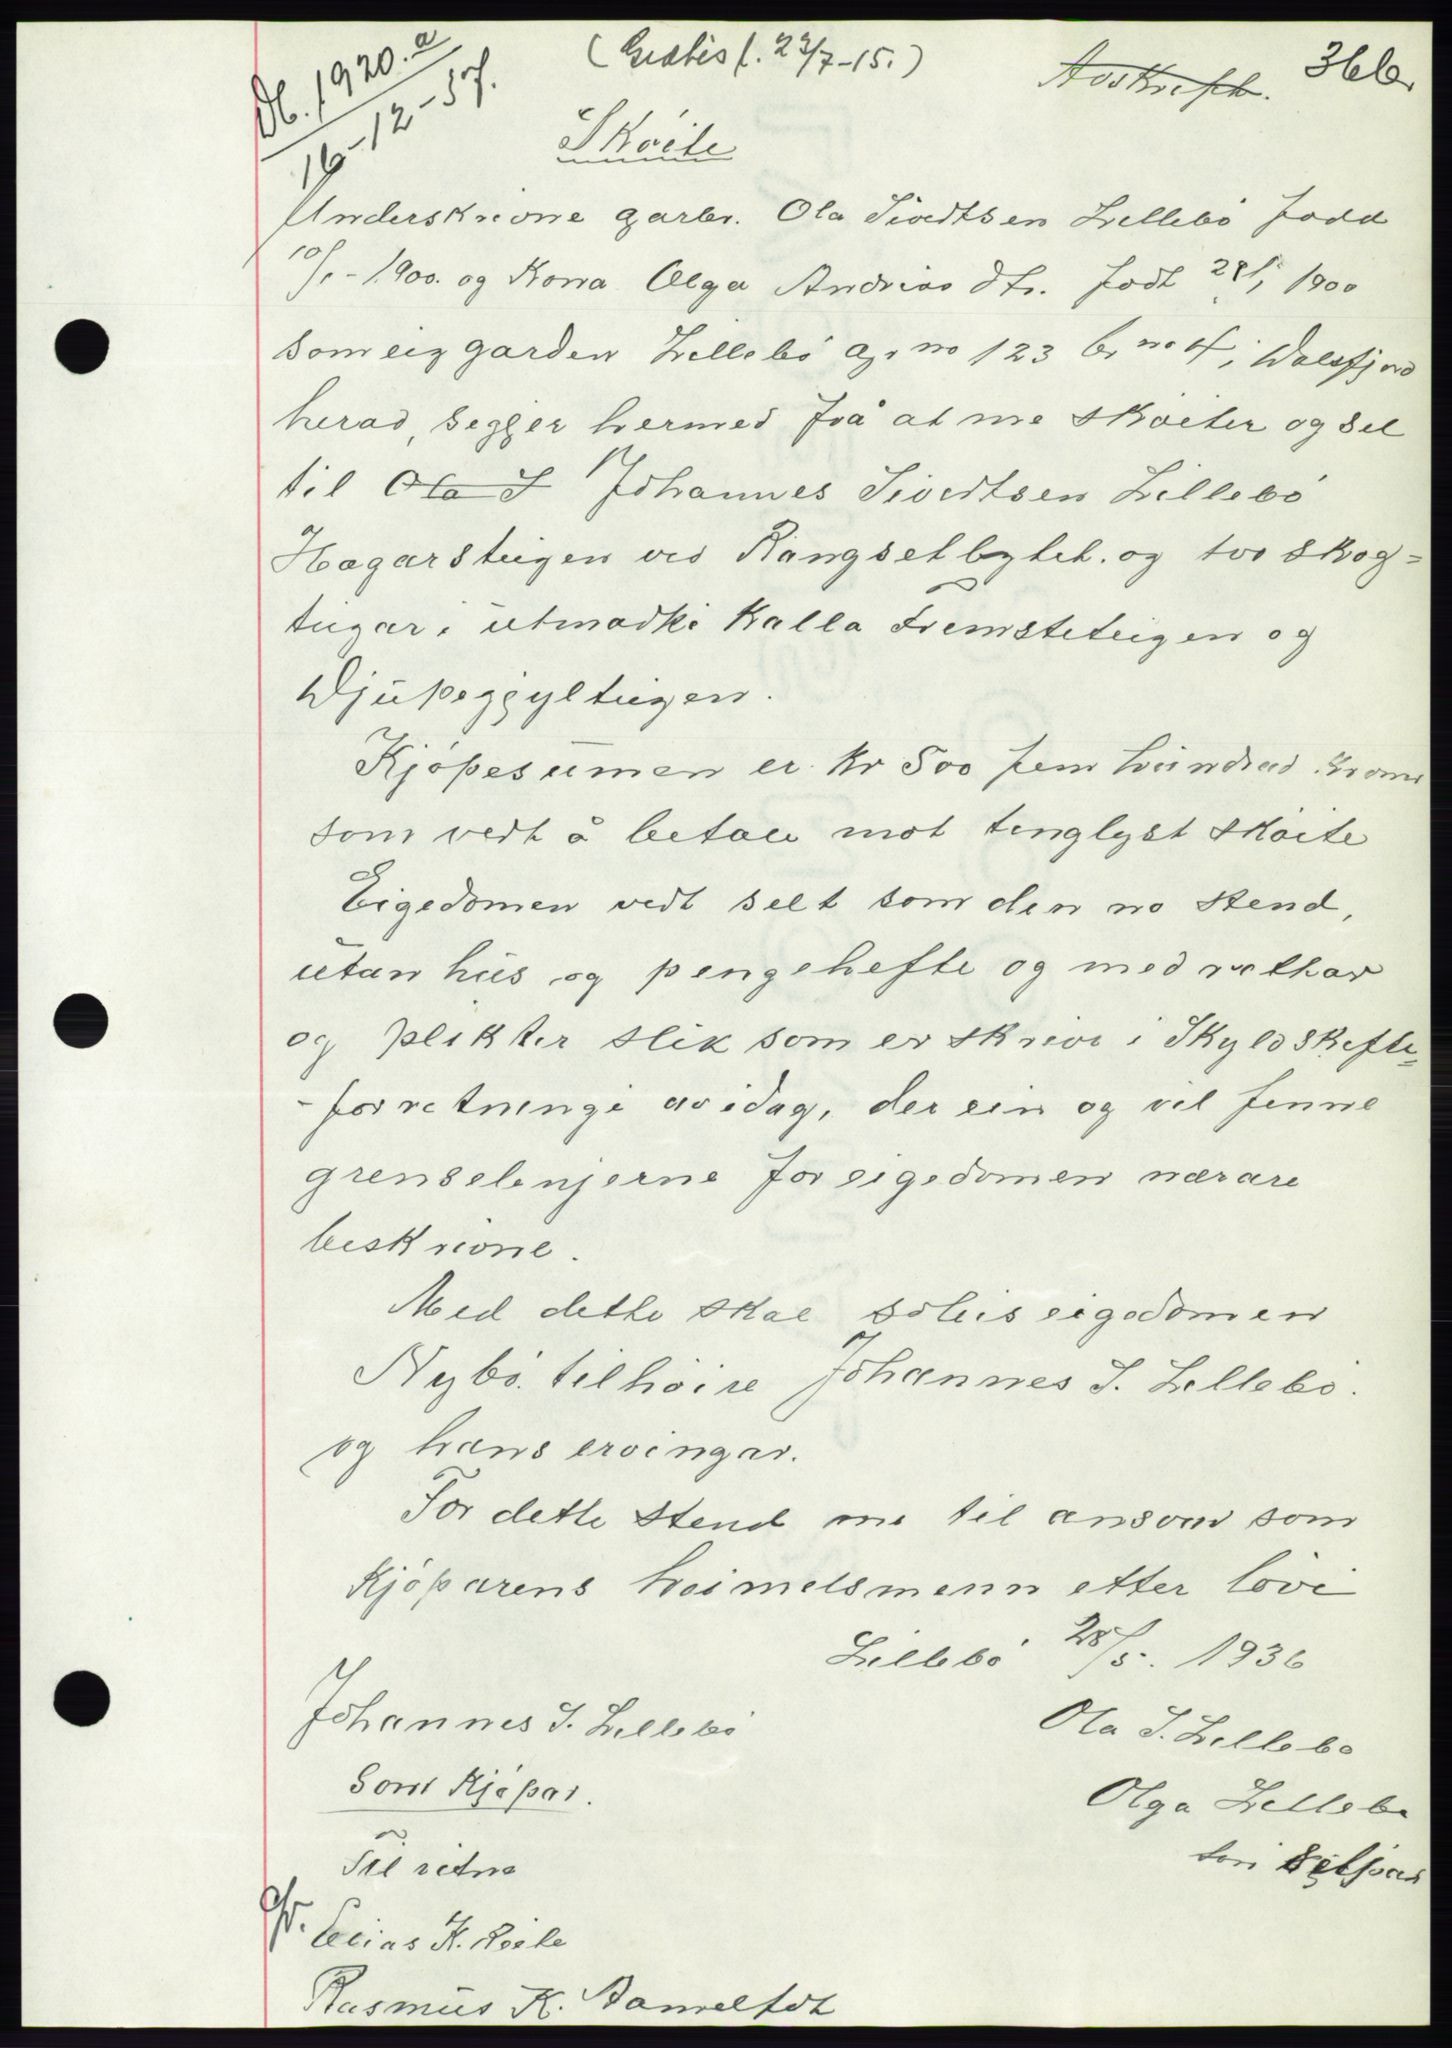 Db. 1920.a
16-12-37.
(Gratis f. 23/7-15.)
Avskrift.
366.
Skøite
Underskrivne garbr. Ola Sivertsen Lillebø fødd
10/1-1900. og Kona Olga Andreas dtr. født 29/1 1900
som eig garden Lillebø gr no 123 br no 4, i Volsfjord
herad, segjer hermed frå at me skøiter og sel
til Ola S Johannes Sivertsen Lillebø
Hagarsteigen ved Rangsetbytet. og tvo skog-
teigar i utmarki kalla Fremsteteigen og
Djupegyljteigen.
Kjøpesumen er kr 500 fem hundrad kroner
som vert å betale mot tinglyst skøite
Eigedomen vert selt som den no stend,
utan hus og pengehefte og med rettar
og plikter slik som er skrive i Skyldskifte-
-forretningi av idag, der ein og vil finne
grenselinjerne for eigedomen nærare
beskrivne.
Med dette skal soleis eigedomen
Nybø. tilhøire Johannes S. Lillebø.
og hans ervingar.
For dette stend me til ansvar som
kjøparens heimelsmenn etter lovi
Lillebø 28/5. 1936
Johannes S. Lillebø
Ola S. Lillebø
Som Kjøpar.
Olga Lillebø
som seljar
Til vitne
Elias K.
Rasmus K.